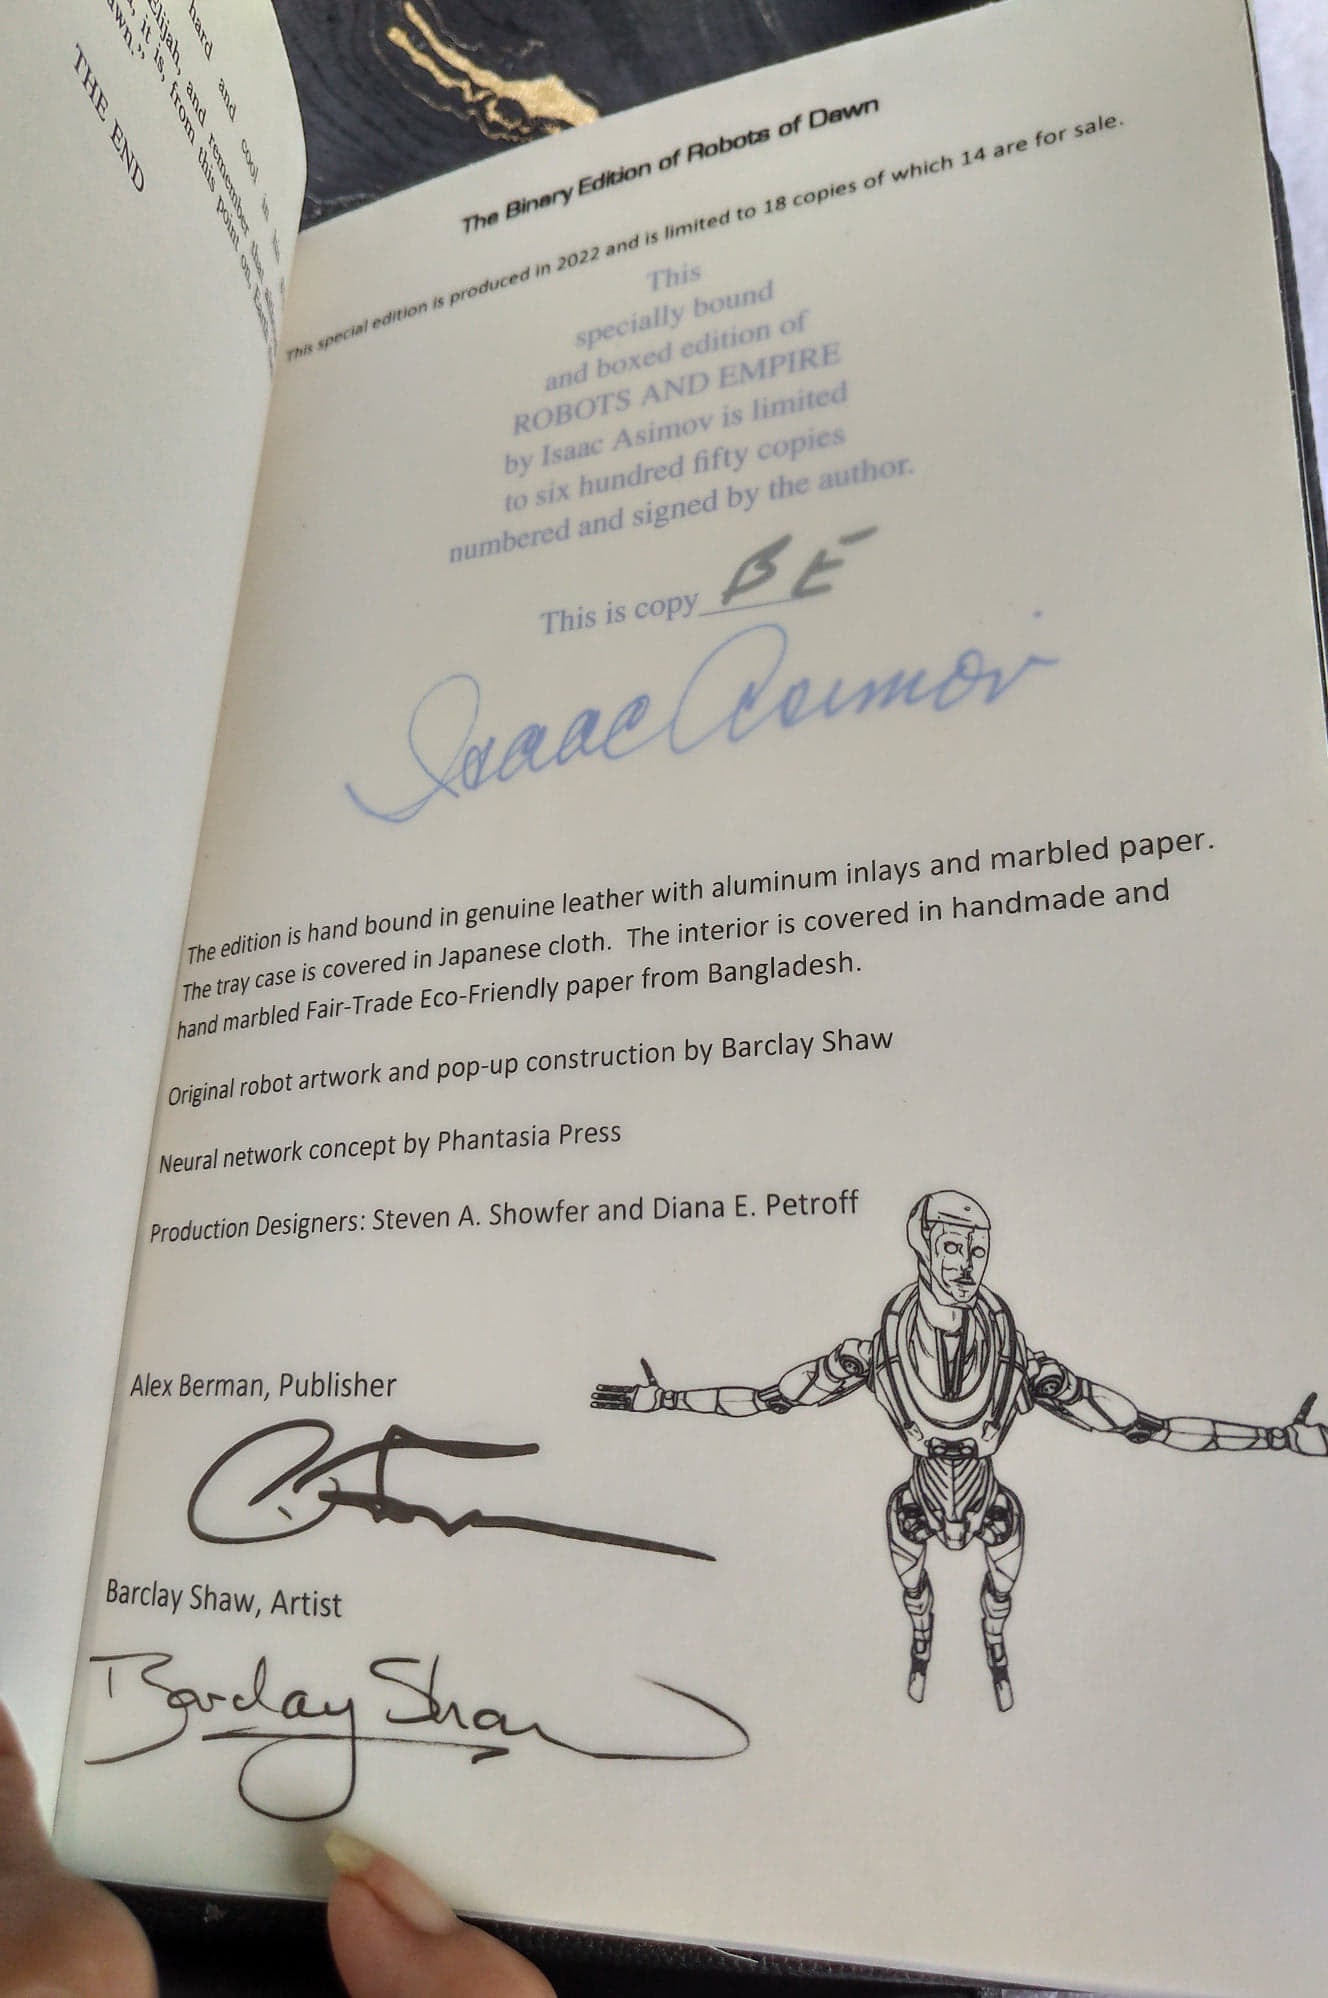 hard and cool in his
Elijah, and remember that
, it is, from this point on, Earth
awn."
THE END
The Binary Edition of Robots of Dawn
This special edition is produced in 2022 and is limited to 18 copies of which 14 are for sale.
This
specially bound
and boxed edition of
ROBOTS AND EMPIRE
by Isaac Asimov is limited
to six hundred fifty copies
numbered and signed by the author.
This is copy BE
Isaac Asimov
The edition is hand bound in genuine leather with aluminum inlays and marbled paper.
The tray case is covered in Japanese cloth. The interior is covered in handmade and
hand marbled Fair-Trade Eco-Friendly paper from Bangladesh.
Original robot artwork and pop-up construction by Barclay Shaw
Neural network concept by Phantasia Press
Production Designers: Steven A. Showfer and Diana E. Petroff
Alex Berman, Publisher
Barclay Shaw, Artist
Barclay Shaw